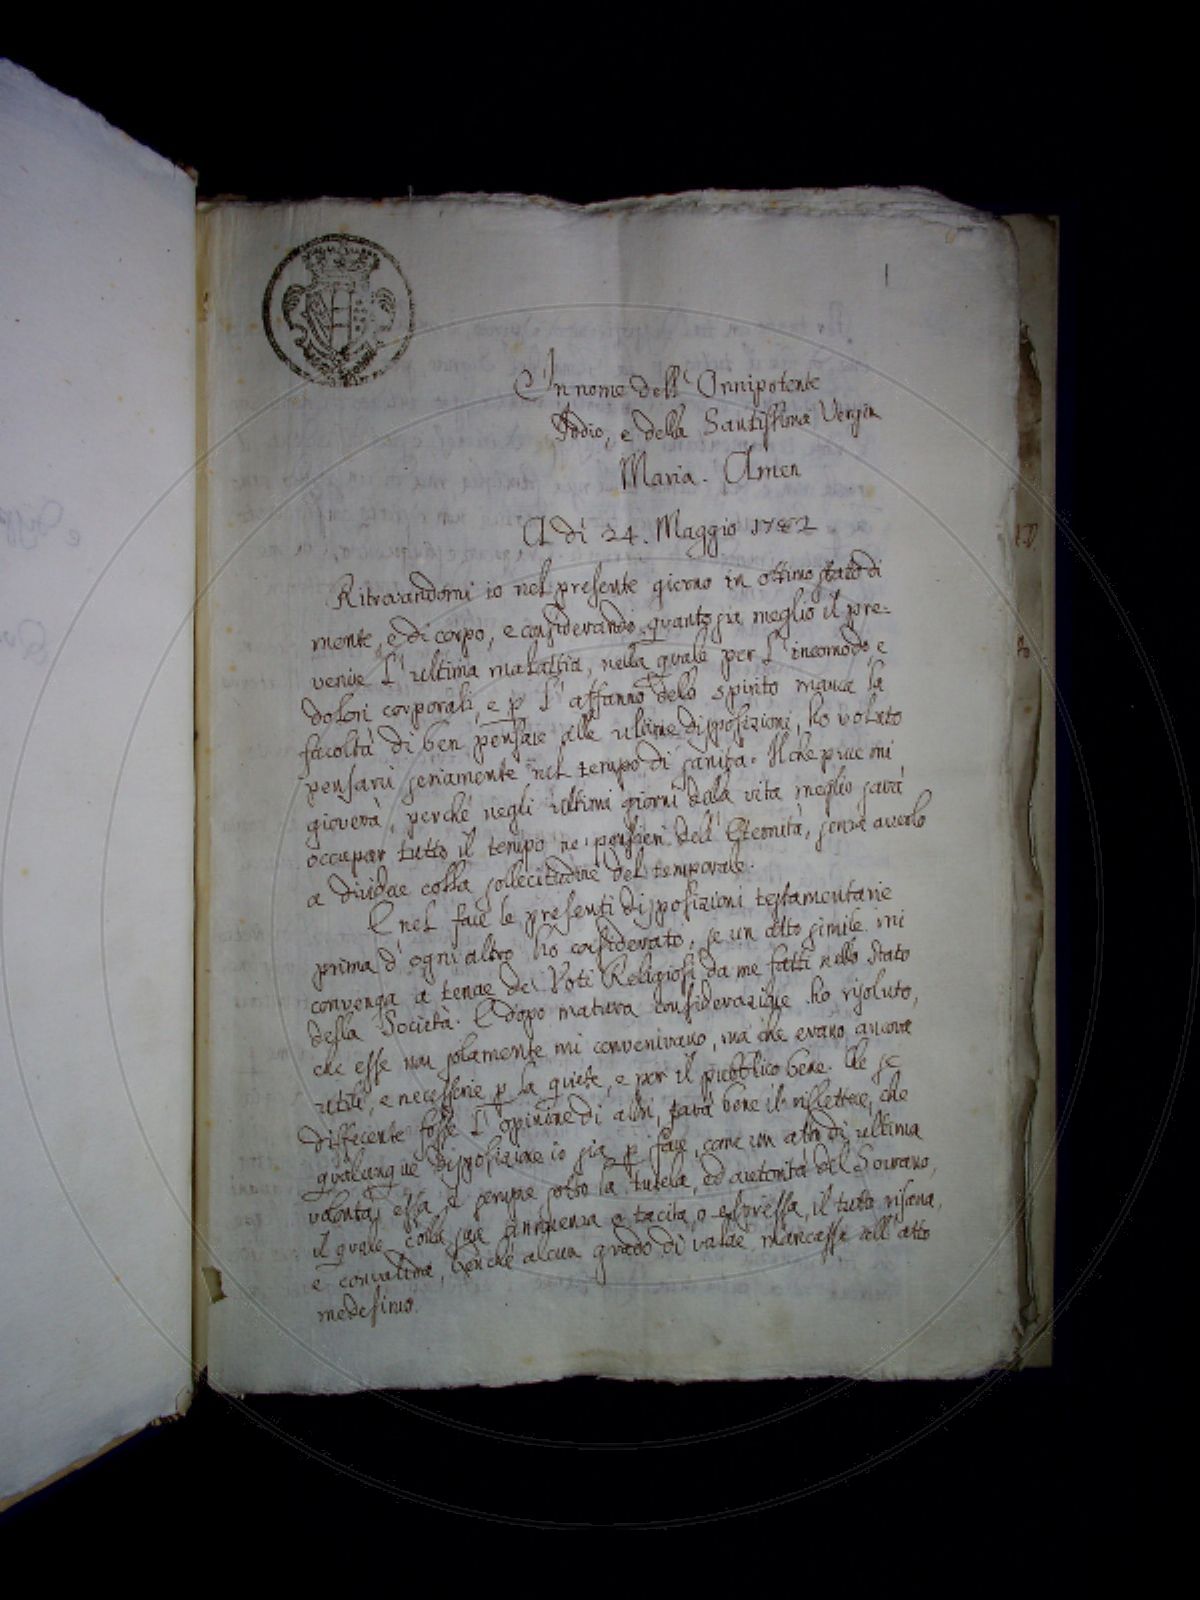 In nome dell' Onnipotente
Iddio, e della Santissima Vergin
Maria. Amen
A di 24. Maggio 1782
Ritrovandomi io nel presente giorno in ottimo stato di
mente, e di corpo, e considerando quanto sia meglio il pre-
venire l' ultima malattia, nella quale per l' incomodo, e
dolori corporali, e p l' affanno dello spirito manca la
facoltà di ben pensare alle ultime disposizioni, ho voluto
pensarvi seriamente nel tempo di sanità. Il che pure mi
gioverà, perchè negli ultimi giorni della vita meglio sarà
occupar tutto il tempo ne' pensieri dell' Eternità, senza averlo
a dividere colla sollecitudine del temporale.
E nel fare le presenti disposizioni testamentarie
prima d' ogni altro ho considerato, se un atto simile mi
convenga a tenore de' Voti Religiosi da me fatti nello Stato
della Società. E dopo matura considerazione ho risoluto,
che esse non solamente mi convenivano, ma che erano ancora
utili, e necessarie p la quiete, e per il pubblico bene. Che se
differente fosse l' opinione di altri, sarà bene il riflettere, che
qualunque disposizione io sia p fare, come un atto di ultima
volontà, essa è sempre sotto la tutela, ed autorità del Sovrano,
il quale colla sua annuenza o tacita, o espressa, il tutto risana,
e convalida, benchè alcun grado di valore mancasse all' atto
medesimo.